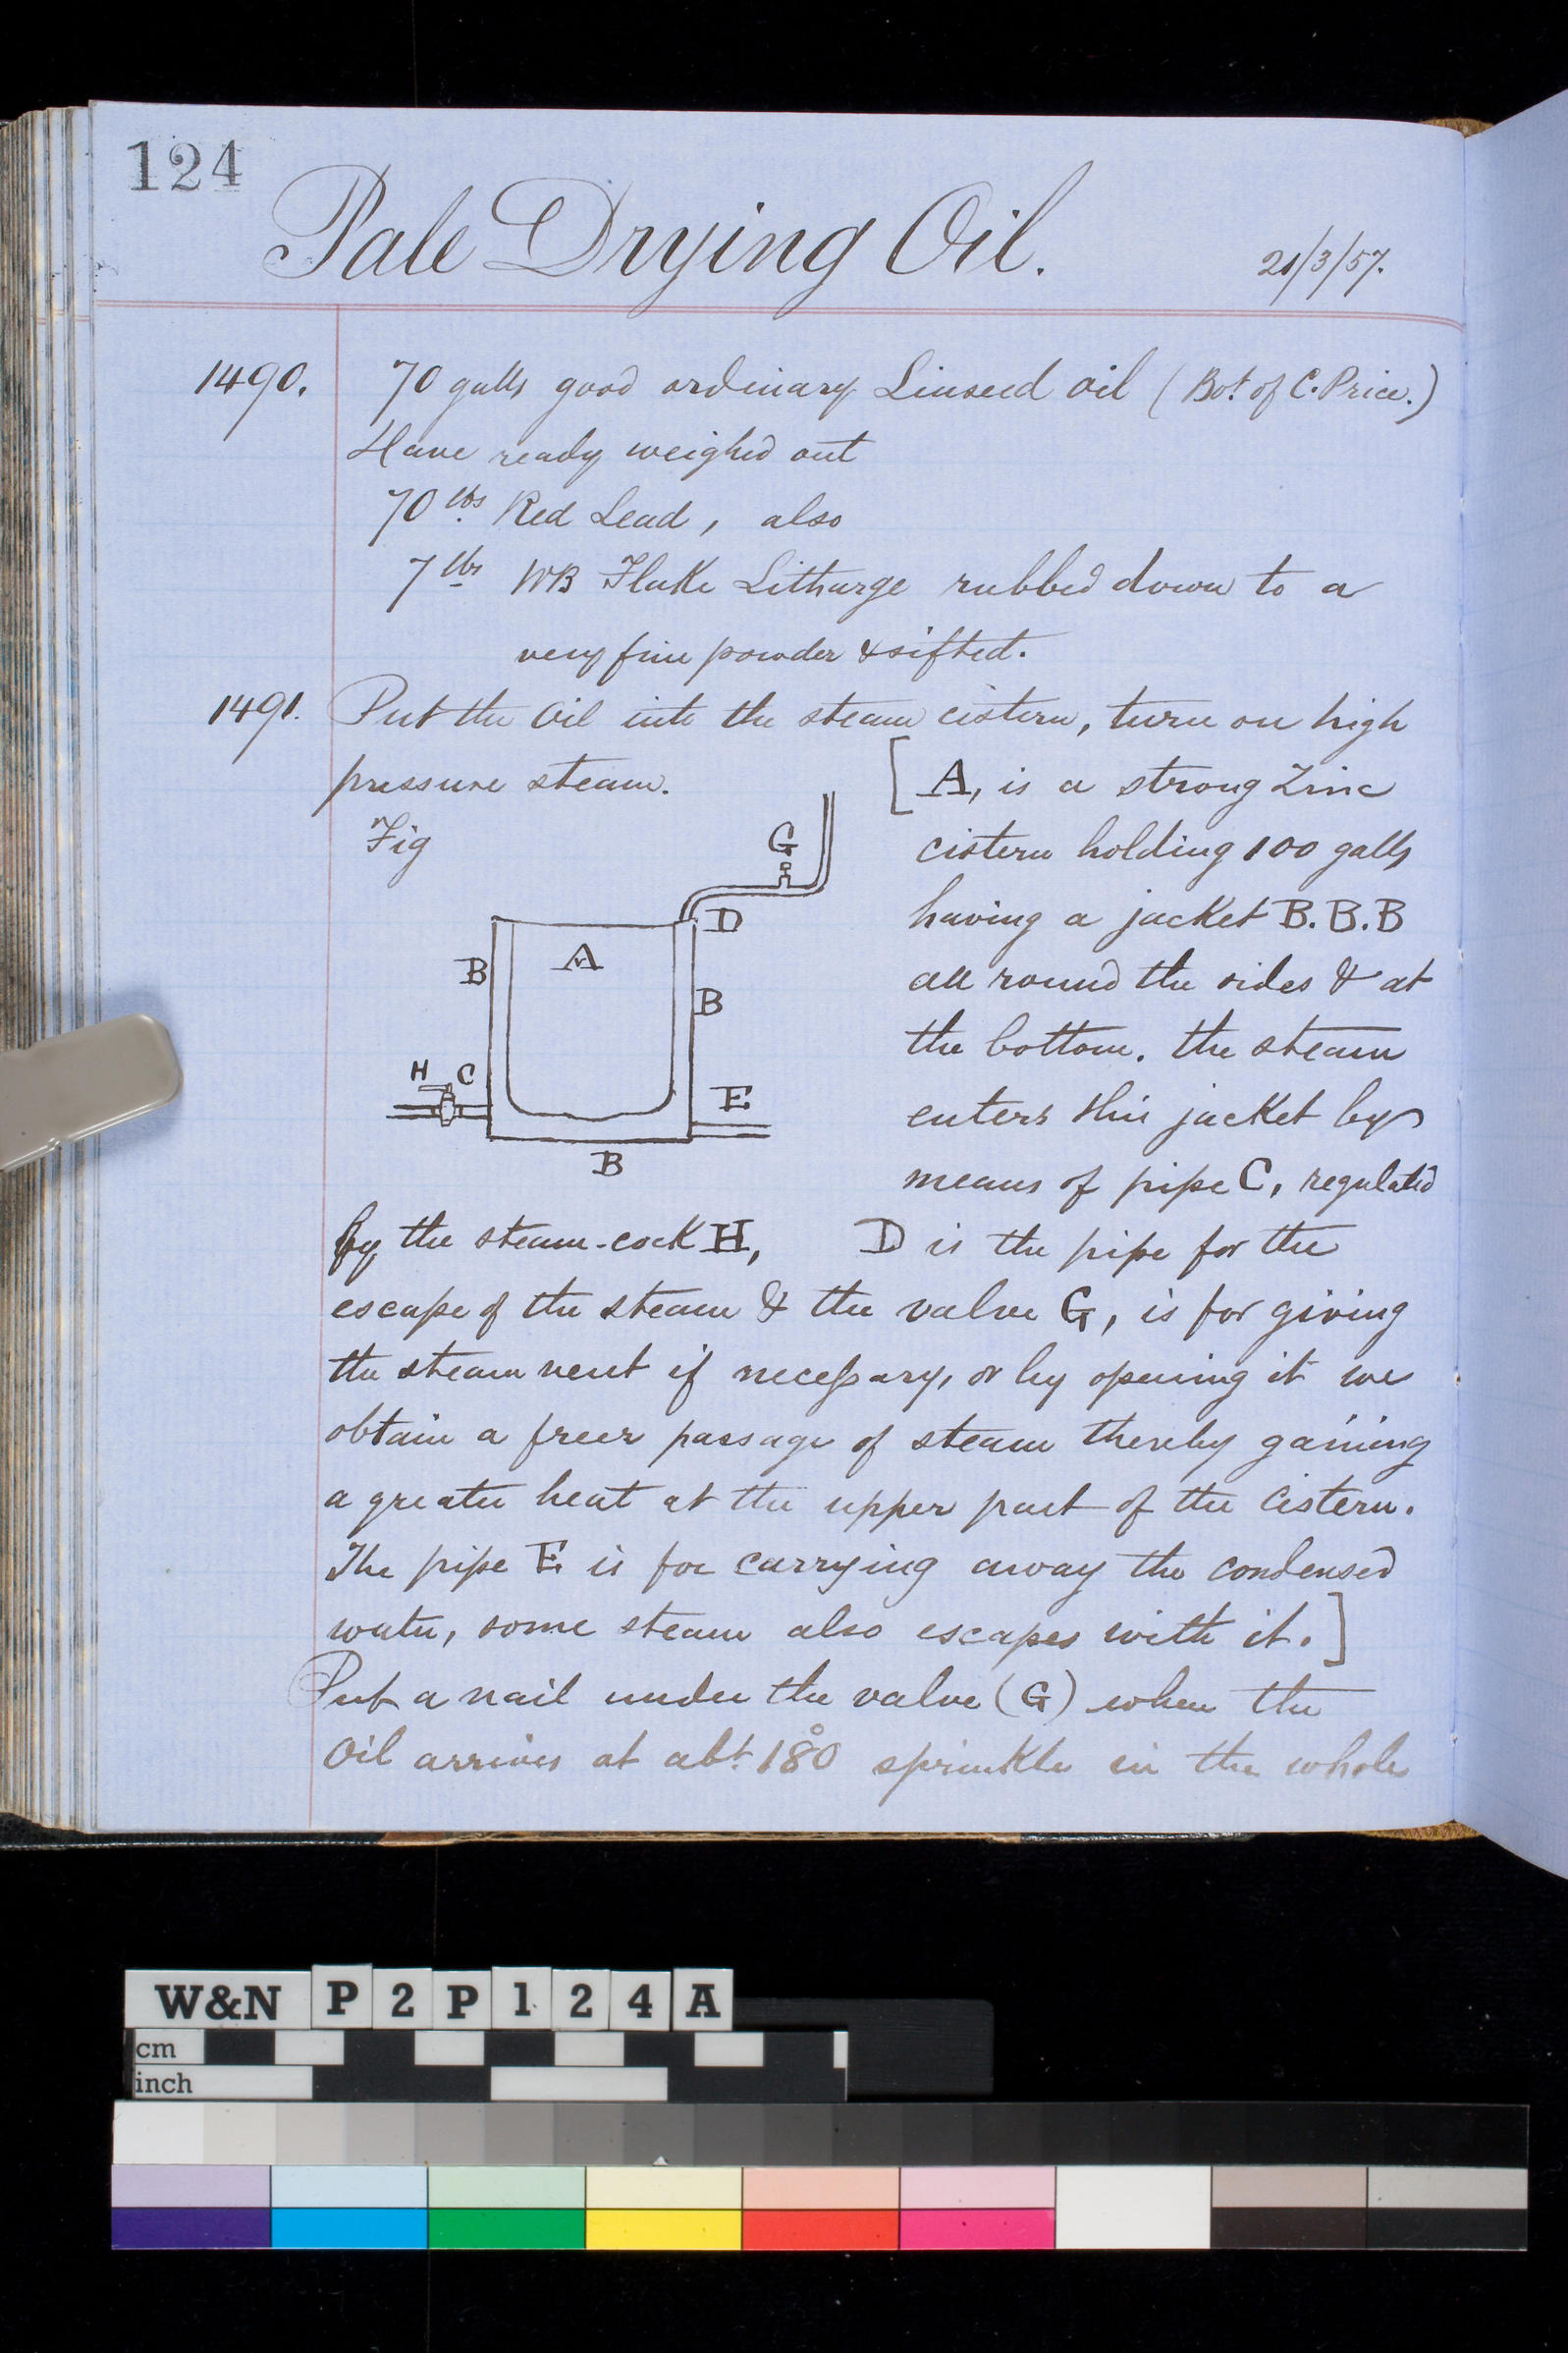 124
Pale Drying Oil.
21/3/57.
1490. 70 galls good ordinary Linseed oil (Bot. of C. Price.)
Have ready weighed out
70 lbs Red Lead, also
7 lbs WB Flake Litharge rubbed down to a
very fine powder & sifted.
1491. Put the Oil into the steam cistern, turn on high
pressure steam.
Fig
G
D
A
B
B
H C
E
B
[A, is a strong Zinc
cistern holding 100 galls
having a jacket B.B.B
all round the sides & at
the bottom. the steam
enters this jacket by
means of pipe C, regulated
by the steam-cock H, D is the pipe for the
escape of the steam & the valve G, is for giving
the steam vent if necessary, or by opening it we
obtain a freer passage of steam thereby gaining
a greater heat at the upper part of the Cistern.
The pipe E is for carrying away the condensed
water, some steam also escapes with it.]
Put a nail under the valve (G) when the
Oil arrives at abt. 180° sprinkle in the whole
W&N P 2 P 1 2 4 A
cm
inch